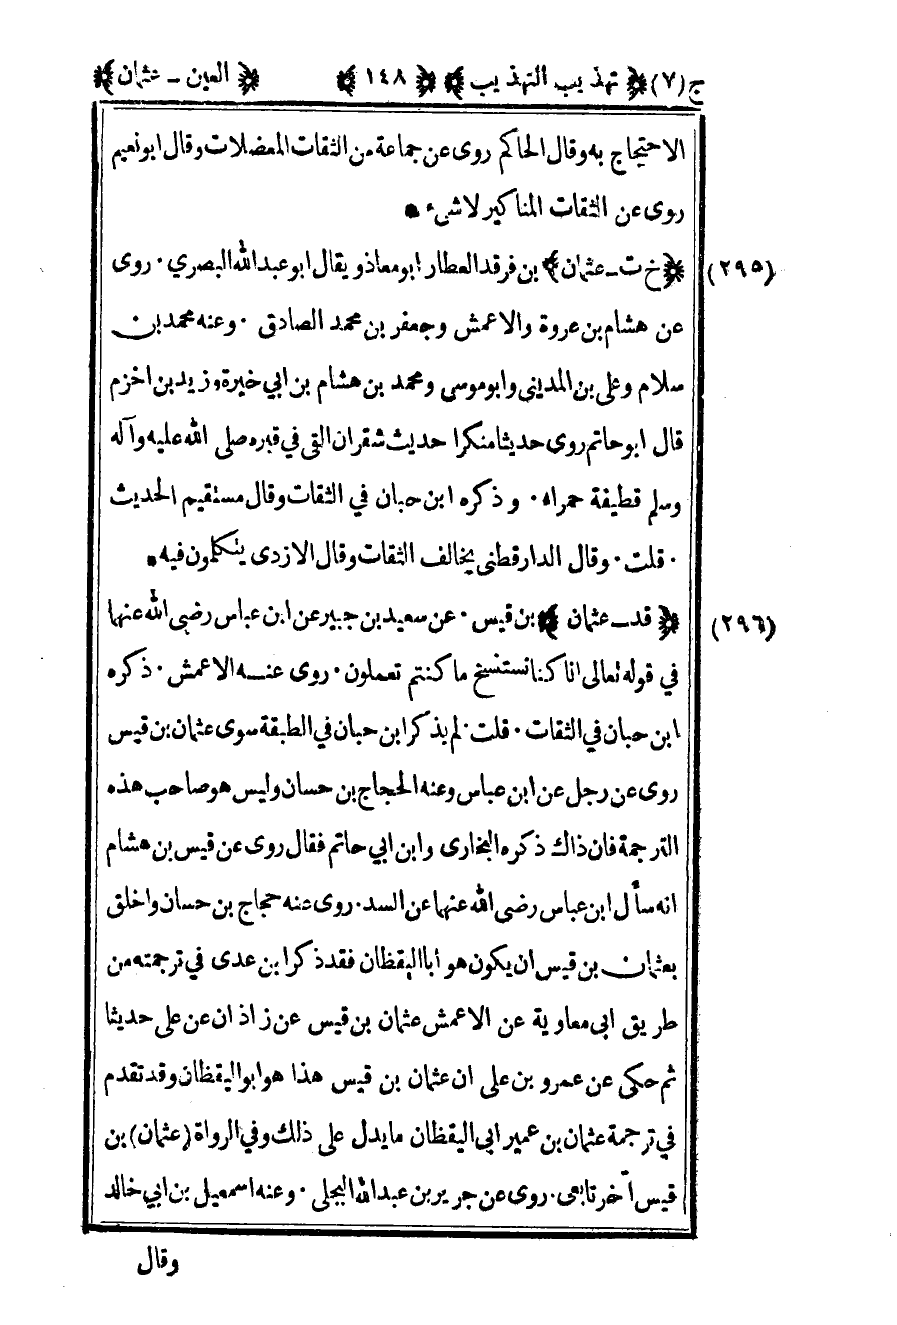 ج (٧) ﴿ تهذيب التهذيب ﴾ ﴿ ١٤٨ ﴾ ﴿ العين ـ عثمان ﴾
الاحتجاج به وقال الحاكم روى عن جماعة من الثقات المعضلات وقال ابو نعيم
روى عن الثقات المناكير لا شىء •
(٢٩٥) ﴿ خ ت ـ عثمان ﴾ بن فرقد العطار ابو معاذ ويقال ابو عبد الله البصري · روى
عن هشام بن عروة والاعمش وجعفر بن محمد الصادق · وعنه محمد بن
سلام وعلى بن المدينى وابو موسى ومحمد بن هشام بن ابي خيرة وزيد بن اخزم
قال ابو حاتم روى حديثا منكرا حديث شقران القى في قبره صلى الله عليه وآله
وسلم قطيفة حمراء · وذكره ابن حبان في الثقات وقال مستقيم الحديث
· قلت · وقال الدارقطنى يخالف الثقات وقال الازدى يتكلمون فيه •
(٢٩٦) ﴿ قد ـ عثمان ﴾ بن قيس · عن سعيد بن جبير عن ابن عباس رضى الله عنهما
في قوله تعالى انا كنا نستنسخ ما كنتم تعملون · روى عنه الاعمش · ذكره
ابن حبان في الثقات · قلت · لم يذكر ابن حبان في الطبقة سوى عثمان بن قيس
روى عن رجل عن ابن عباس وعنه الحجاج بن حسان وليس هو صاحب هذه
الترجمة فان ذاك ذكره البخارى وابن ابي حاتم فقال روى عن قيس بن هشام
انه سأل ابن عباس رضى الله عنهما عن السد · روى عنه حجاج بن حسان واخلق
بعثمان بن قيس ان يكون هو ابا اليقظان فقد ذكر ابن عدى في ترجمته من
طريق ابى معاوية عن الاعمش عثمان بن قيس عن زاذان عن على حديثا
ثم حكى عن عمرو بن على ان عثمان بن قيس هذا هو ابو اليقظان وقد تقدم
في ترجمة عثمان بن عمير ابى اليقظان ما يدل على ذلك وفي الرواة (عثمان) بن
قيس آخر تابعى · روى عن جرير بن عبد الله البجلى · وعنه اسمعيل بن ابي خالد
وقال